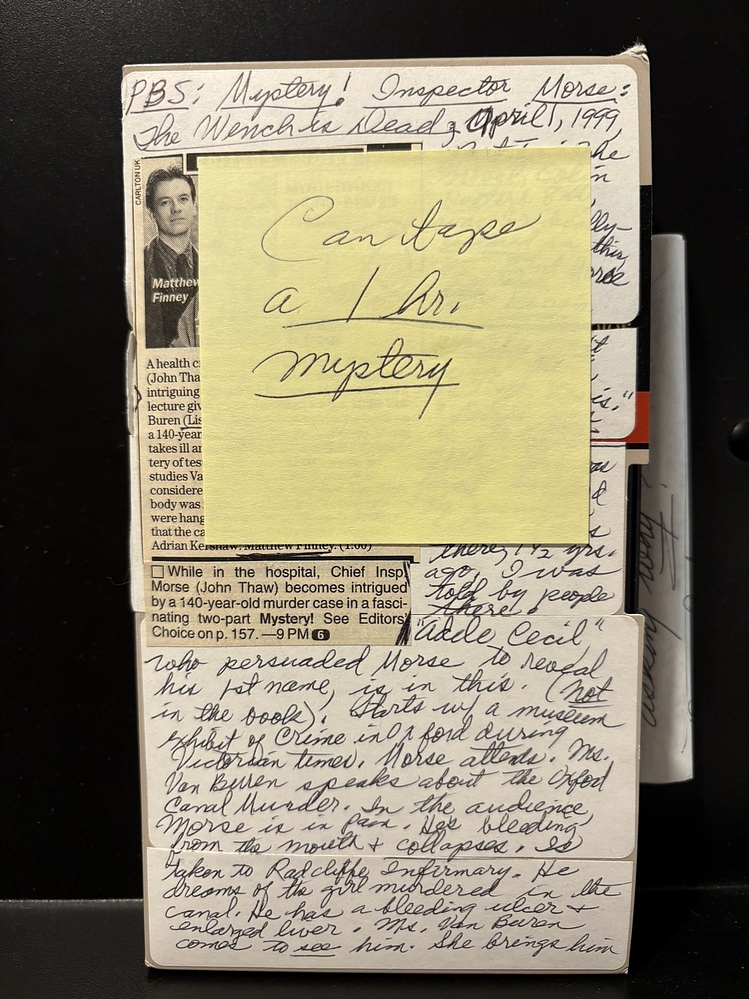 PBS: Mystery! Inspector Morse:
The Wench is Dead, April 1, 1999,
he
in
CARLTON UK
lly-
this
Matthew
Finney
Can tape
a 1 hr.
mystery
A health c
(John Tha
intriguing
lecture giv
Buren (Lis
a 140-year
takes ill an
tery of tes
studies Va
considere
body was
were hang
that the ca
Adrian Kershaw: Matthew Finney. (1:00)
is."
there, 1 1/2 yrs.
ago, I was
told by people
there.
While in the hospital, Chief Insp.
Morse (John Thaw) becomes intrigued
by a 140-year-old murder case in a fasci-
nating two-part Mystery! See Editors'
Choice on p. 157. —9 PM 6
"Adele Cecil"
who persuaded Morse to reveal
his 1st name, is in this. (not
in the book). Starts w/ a museum
exhibit of Crime in Oxford during
Victorian times. Morse attends. Ms.
Van Buren speaks about the Oxford
Canal Murder. In the audience,
Morse is in pain. He's bleeding
from the mouth & collapses. Is
taken to Radcliffe Infirmary. He
dreams of the girl murdered in the
canal. He has a bleeding ulcer &
enlarged liver. Ms. Van Buren
comes to see him. She brings him